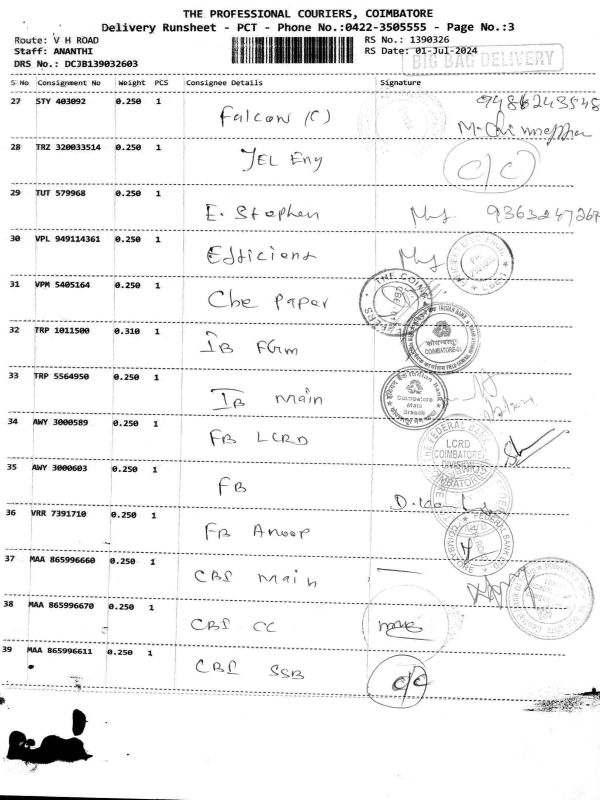 THE PROFESSIONAL COURIERS, COIMBATORE
Delivery Runsheet - PCT - Phone No.:0422-3505555 - Page No.:3
Route: V H ROAD RS No.: 1390326
Staff: ANANTHI RS Date: 01-Jul-2024
DRS No.: DCJB139032603 BIG BAG DELIVERY
S No Consignment No Weight PCS Consignee Details Signature
27 STY 403092 0.250 1 Falcon (C)
28 TRZ 320033514 0.250 1 JEL Eny C/C
29 TUT 579968 0.250 1 E. Stephen
30 VPL 949114361 0.250 1 Efficient
31 VPM 5405164 0.250 1 Cbe Paper
THE COIM
32 TRP 1011500 0.310 1 IB FGm
कोयम्बत्तूर
COIMBATORE-01
33 TRP 5564950 0.250 1 IB Main
Indian Bank
Coimbatore
Main
Branch
34 AWY 3000589 0.250 1 FB LCRD
FEDERAL BANK
LCRD
COIMBATORE
DIVISION
35 AWY 3000603 0.250 1 FB
36 VRR 7391710 0.250 1 FB Anoop
37 MAA 865996660 0.250 1 CBI Main
38 MAA 865996670 0.250 1 CBI CC
39 MAA 865996611 0.250 1 CBI SSB C/C